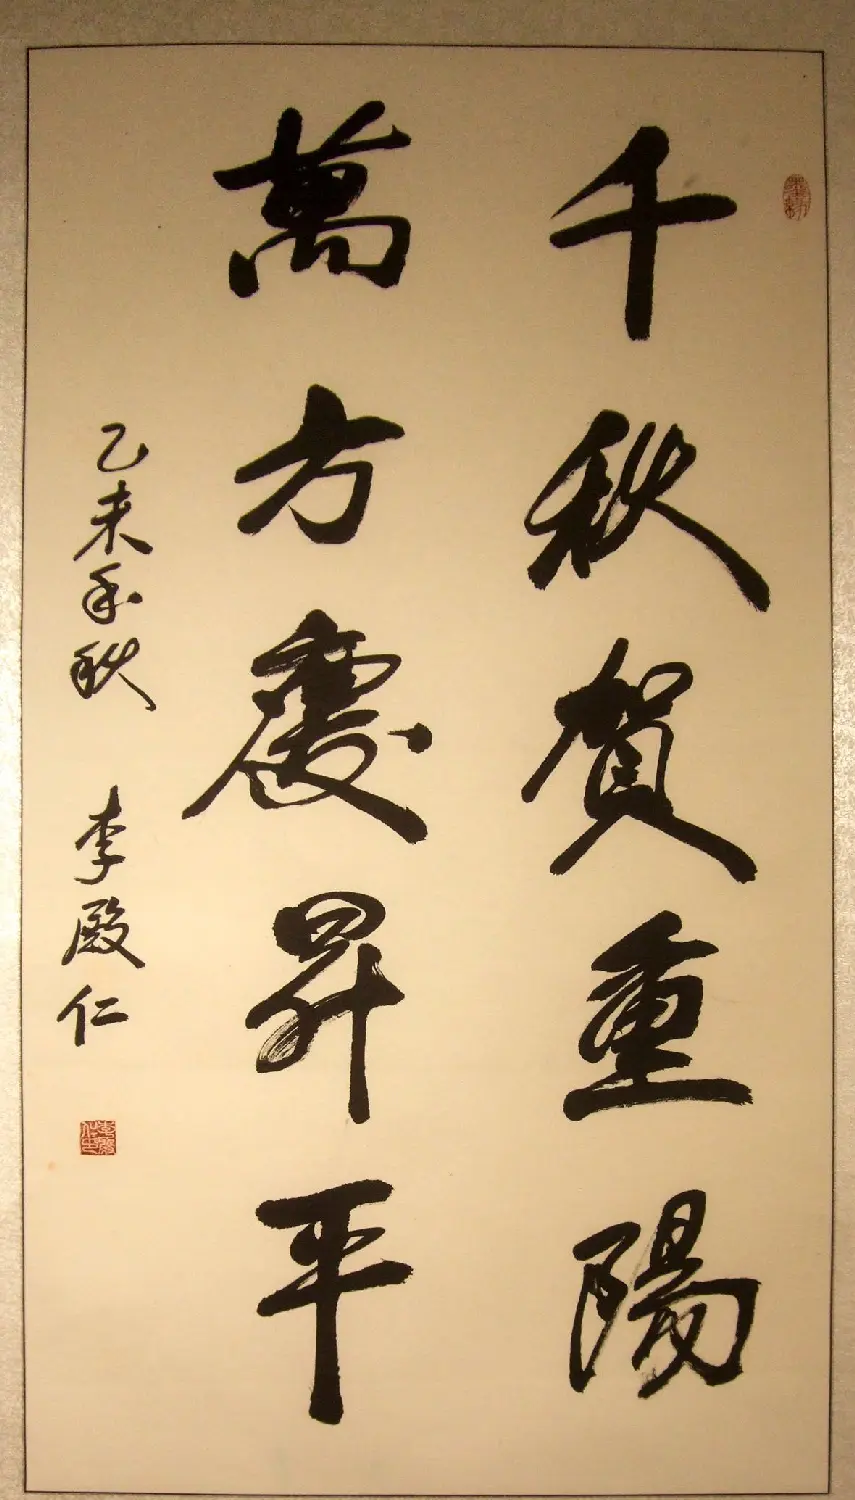 千秋賀重陽
萬方慶昇平
乙未年秋 李殿仁